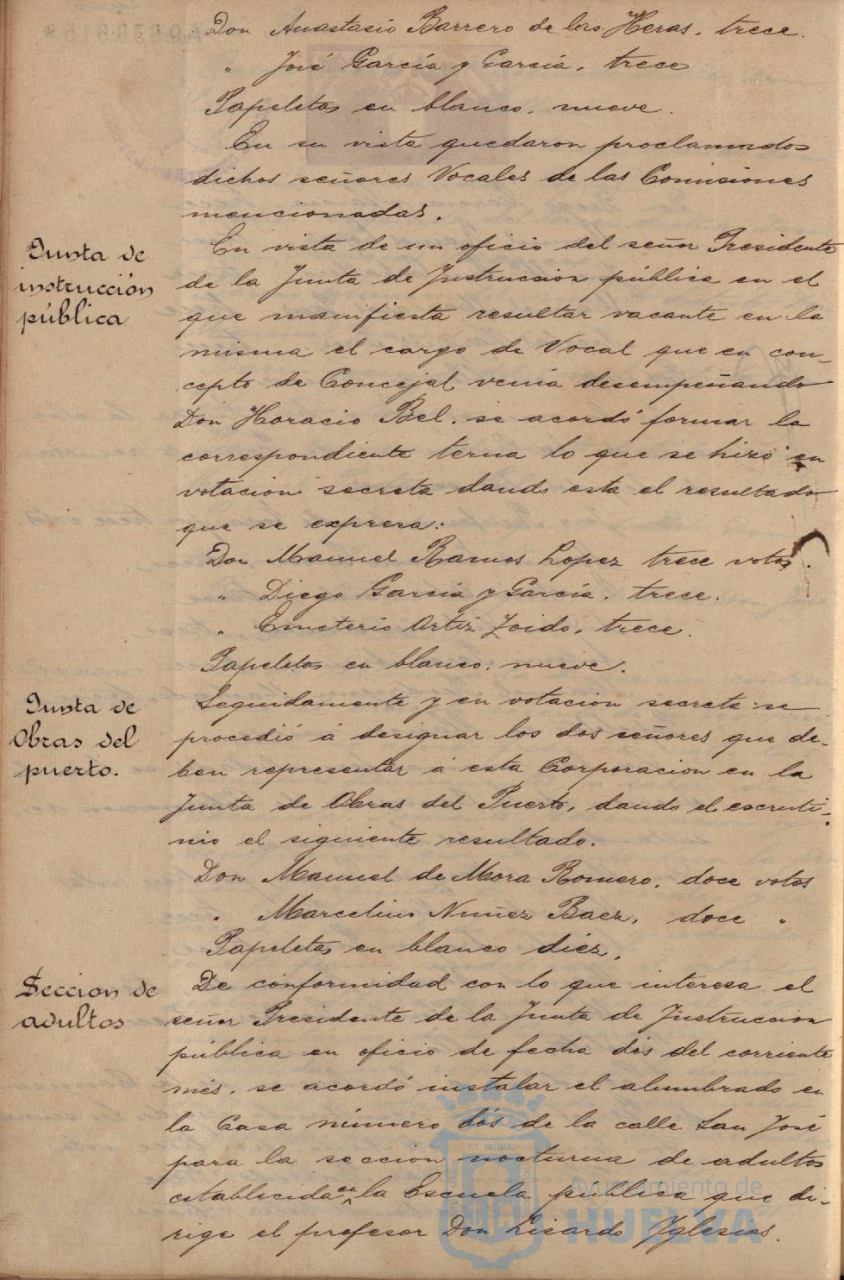 Don Anastasio Barrero de las Heras, trece.
" José García y García, trece
Papeletas en blanco, nueve.
En su vista quedaron proclamados
dichos señores Vocales de las Comisiones
mencionadas.
Junta de
instrucción
pública
En vista de un oficio del señor Presidente
de la Junta de Instruccion pública en el
que manifiesta resultar vacante en la
misma el cargo de Vocal que en con-
cepto de Concejal venia desempeñando
Don Horacio Bel, se acordó formar la
correspondiente terna lo que se hizo en
votacion secreta dando esta el resultado
que se expresa:
Don Manuel Ramos Lopez trece votos.
" Diego García y García, trece.
" Emeterio Ortiz Zoido, trece.
Papeletas en blanco, nueve.
Junta de
Obras del
puerto.
Seguidamente y en votacion secreta se
procedió á designar los dos señores que de-
ben representar á esta Corporacion en la
Junta de Obras del Puerto, dando el escruti-
nio el siguiente resultado.
Don Manuel de Mora Romero, doce votos
" Marcelino Nuñez Baez, doce "
Papeletas en blanco diez.
Seccion de
adultos
De conformidad con lo que interesa el
señor Presidente de la Junta de Instruccion
pública en oficio de fecha dós del corriente
més, se acordó instalar el alumbrado en
la Casa número dós de la calle San José
para la sección nocturna de adultos
establecida en la Escuela pública que di-
rige el profesor Don Lisardo Yglesias.
Ayuntamiento de
HUELVA